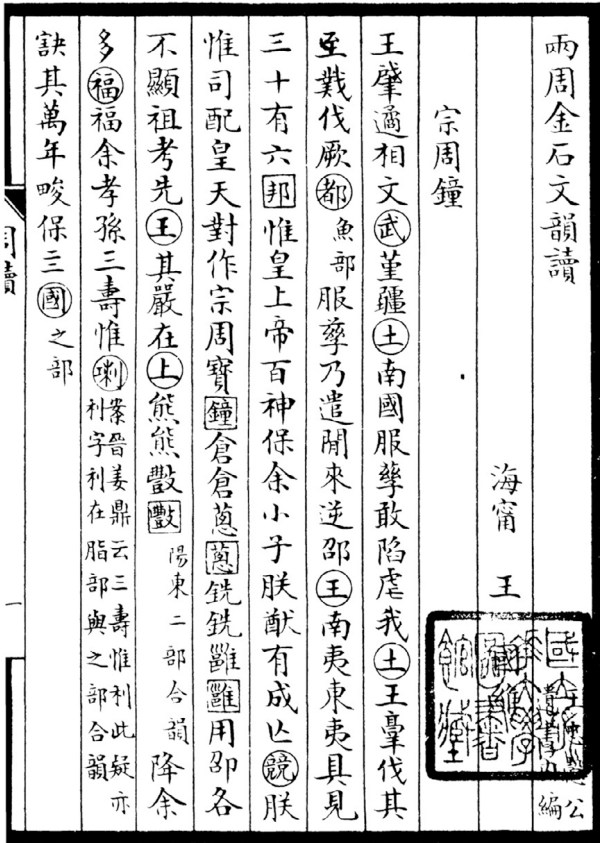 兩周金石文韻讀
公
編
海甯 王
宗周鐘
王肇遹相文武堇疆土南國服孳敢陷虐我土王伐其
至伐厥都魚部服孳乃遣閒來逆邵王南夷東夷具見
三十有六邦惟皇上帝百神保余小子朕猷有成亾競朕
惟司配皇天對作宗周寶鐘倉倉蔥蔥銑銑雝雝用邵各
不顯祖考先王其嚴在上熊熊𤾊𤾊陽東二部合韻降余
多福福余孝孫三壽惟琍案晉姜鼎云三壽惟利此疑亦
利字利在脂部與之部合韻
訣其萬年畯保三國之部
周讀
一